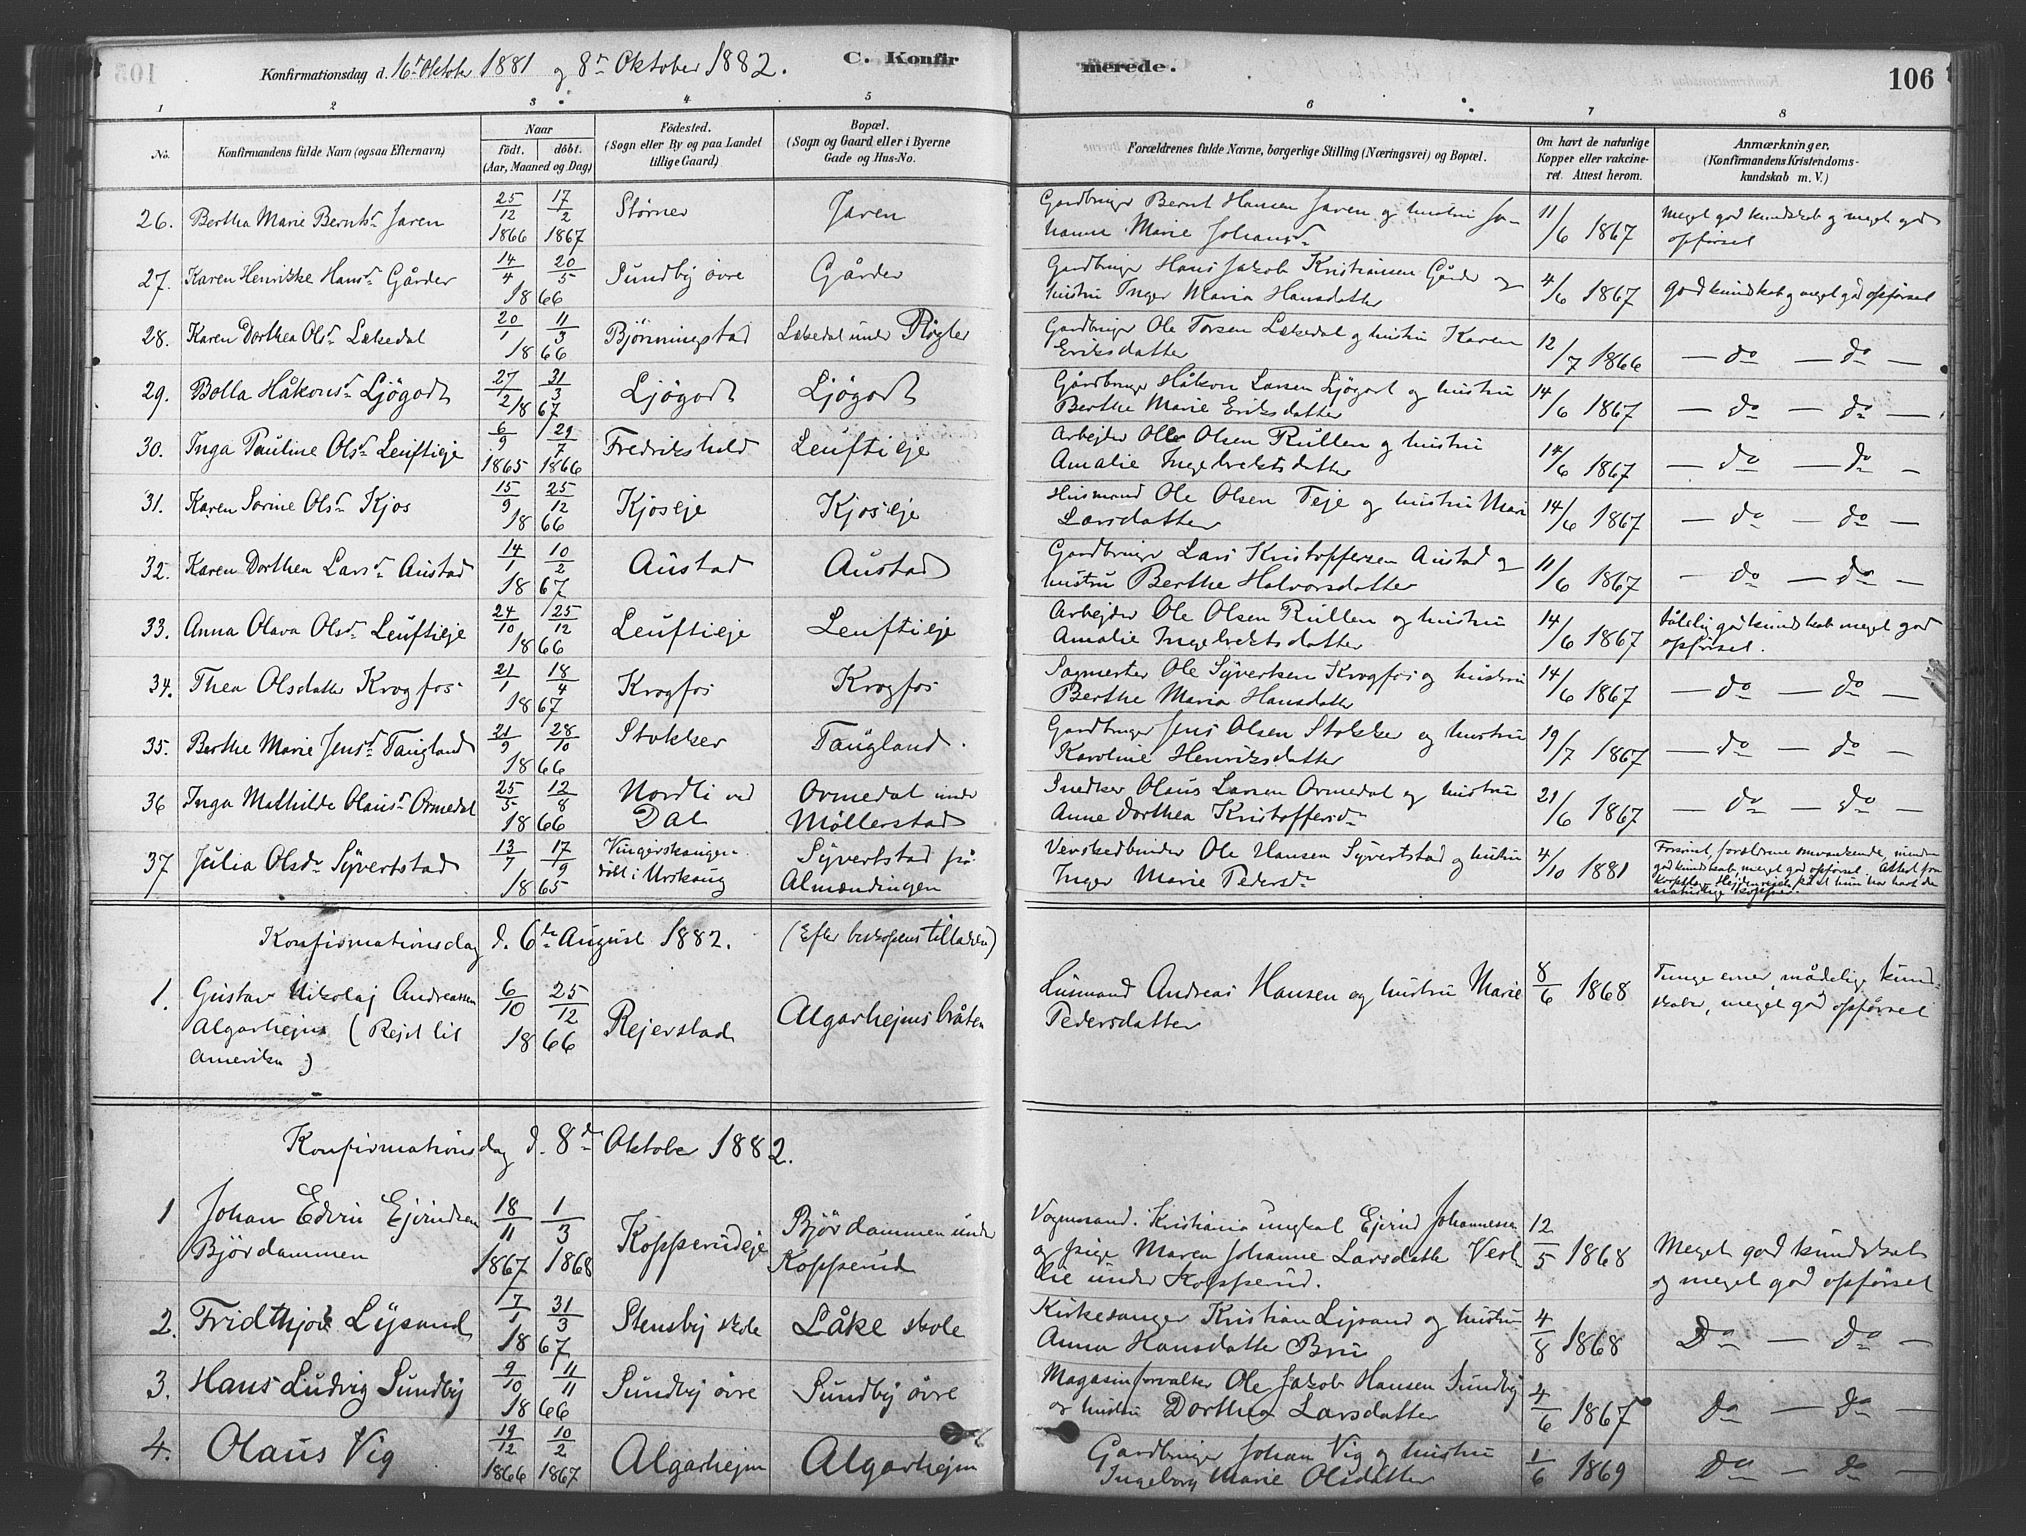 Konfirmationsdag d. 16de Oktober 1881 og 8de Oktober 1882. C. Konfirmerede. 106
1 2 3 4 5 6 7 8
No. Konfirmandens fulde Navn (ogsaa Efternavn) Naar födt. döbt. (Aar, Maaned og Dag) Födested. (Sogn eller By og paa Landet tillige Gaard) Bopæl. (Sogn og Gaard eller i Byerne Gade og Hus-No. Forældrenes fulde Navne, borgerlige Stilling (Næringsvei) og Bopæl. Om havt de naturlige Kopper eller vakcineret. Attest herom. Anmærkninger. (Konfirmandens Kristendomskundskab m. V.)
26. Bertha Marie Berntsd Jaren 25/12 1866 17/2 1867 Störner Jaren Gardbruger Bernt Hansen Jaren og hustru Johanne Marie Johansd 11/6 1867 Meget god kundskab og meget god opförsel
27. Karen Henrikke Hansd Gårder 14/4 20/5 1866 Sundby övre Gårder Gardbruger Hans Jakob Kristiansen Gårder og hustru Inger Maria Hansdatter 4/6 1867 god kundskab og meget god opförsel
28. Karen Dorthea Olsd Lækedal 20/1 11/3 1866 Björnningstad Lækedal under Rögler Gardbruger Ole Torsen Lækedal og hustru Karen Eriksdatter 12/7 1866 — do — do —
29. Bolla Håkonsd Ljögodt 27/2 31/3 1867 Ljögodt Ljögodt Gårdbruger Håkon Larsen Ljögodt og hustru Berthe Marie Eriksdatter 14/6 1867 — do — do —
30. Inga Pauline Olsd Leuftieje 6/9 1865 29/7 1866 Fredrikshald Leuftieje Arbejder Ole Olsen Rullen og hustru Amalie Ingebrektsdatter 14/6 1867 — do — do —
31. Karen Sorine Olsd Kjos 15/9 25/12 1866 Kjoseje Kjoseje Husmand Ole Olsen Teje og hustru Mari Larsdatter 14/6 1867 — do — do —
32. Karen Dorthea Larsd Austad 14/1 10/2 1867 Austad Austad Gardbruger Lars Kristoffersen Austad og hustru Berthe Halvorsdatter 11/6 1867 — do — do —
33. Anna Olava Olsd Leuftieje 24/10 25/12 1866 Leuftieje Leuftieje Arbejder Ole Olsen Rullen og hustru Amalie Ingebrektsdatter 14/6 1867 Tålelig god kundskab meget god opförsel.
34. Thea Olsdatter Krogfos 21/1 18/4 1867 Krogfos Krogfos Sagmester Ole Syvertsen Krogfos og hustru Berthe Maria Hansdatter 14/6 1867 — do — do —
35. Berthe Marie Jensd Taugland 21/9 28/10 1866 Stokker Taugland. Gardbruger Jens Olsen Stokker og hustru Karoline Henriksdatter 19/7 1867 — do — do —
36 Inga Mathilde Olausd Ormedal 25/5 12/8 1866 Nordli ved Dal Ormedal under Möllerstad Snedker Olaus Larsen Ormedal og hustru Anne Dorthea Kristoffersd 21/6 1867 — do — do —
37 Julia Olsd Syvertstad 13/7 17/9 1865 Vingerskaugen döbt i Urskaug Syvertstad på Almændingen Ole Hansen Syvertstad og hustru Inger Marie Pedersd 4/10 1881 forældrene omvankende, god kundskab meget god opförsel. Attest fra at hun har havt de naturlige kopper.
Konfirmationsdag d. 6te August 1882. (Efter biskopens tilladelse)
1. Gustav Nikolaj Andreassen Algarhejm (Rejst til Amerika) 6/10 25/12 1866 Rejerstad Algarhejmsbråten Husmand Andreas Hansen og hustru Marie Pedersdatter 8/6 1868 Tunge evner, mådelig kundskaber, meget god opförsel
Konfirmationsdag d. 8de Oktober 1882.
1 Johan Edvin Ejvindsen Björdammen 18/11 1867 1/3 1868 Kopperudeje Björdammen under Kopperud Vognmand. Kristiania ungkal Ejvind Johannessen og pige Maren Johanne Larsdatter Vestlie under Kopperud. 12/5 1868 Meget god kundskab og meget god opförsel
2. Fridthjov Lysand 7/1 31/3 1867 Stensby skole Låke skole Kirkesanger Kristian Lysand og hustru Anna Hansdatter Bru 4/8 1868 Do — do —
3. Hans Ludvig Sundby 9/10 11/11 1866 Sundby övre Sundby övre Magasinforvalter Ole Jakob Hansen Sundby og hustru Dorthea Larsdatter 4/6 1867 Do — Do —
4. Olaus Vig 19/12 1866 10/2 1867 Algarhejm Algarhejm Gardbruger Johan Vig og hustru Ingeborg Marie Olsdatter 1/6 1869 Do — do —